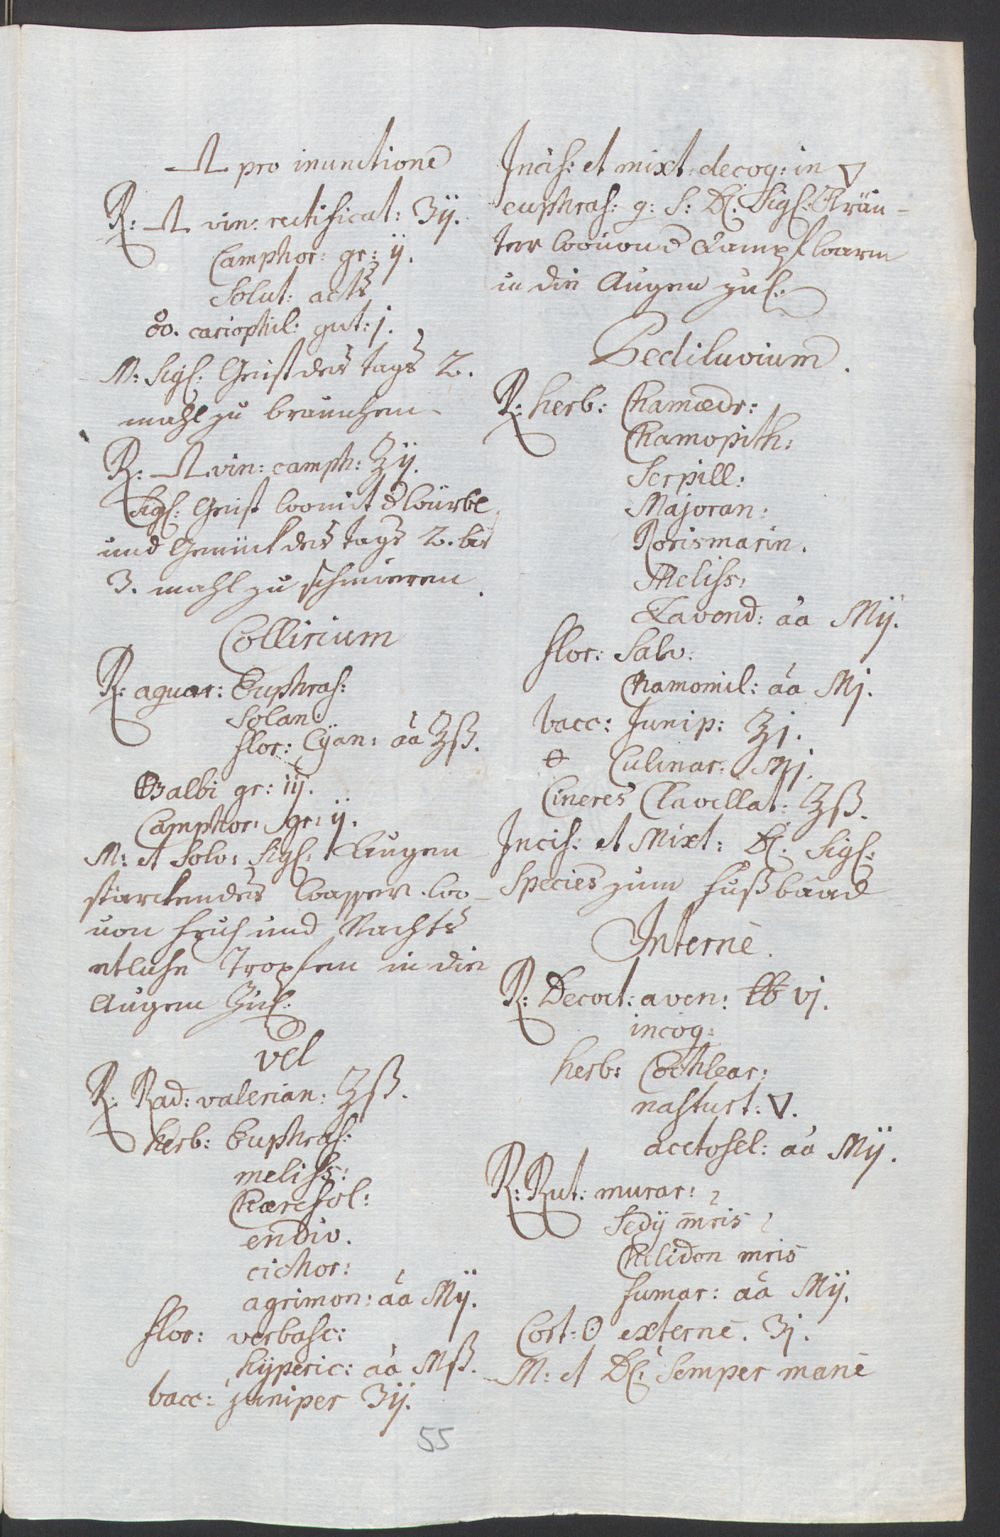 pro inunctione
R: vin: rectificat: ʒij.
Camphor: gr: ij.
Solut: acts
oo. cariophil: gut: j.
M: Sigl: Geist des tags 2.
mahl zu brauchen
R: vin: camph: ℥ij.
Sigl: Geist womit
und Genück des tags 2. bis
3. mahl zu schmieren.
Collirium
R: aquar: Euphras:
Solan:
flor: Cÿan: áá ℥ß.
albi gr: iij.
Camphor: gr: ij.
M: et Solv: Sigl: Augen
starckendes Wasser wo-
uon fruh und Nachts
etliche Tropfen in die
Augen Zu
vel
R: Rad: valerian: ℥ß.
herb: Euphras:
meliss:
Chærefol:
endiv.
cichor:
agrimon: áá Mij.
flor: verbasc:
hÿperic: áá Mß.
bacc: juniper ʒij.
55
Incis: et mixt: decoq: in ▽
euphras: q: s: D: Sigl: Kräu-
ter wouon d Dampf warm
in die Augen zu
Pediluvium.
R: herb: Chamædr:
Chamopith:
Serpill:
Majoran:
Rorismarin.
Meliss:
Lavend: áá Mij.
flor: Salv:
Chamomil: áá Mj.
bacc: Junip: ℥j.
Culinar: Mj.
Cineres Clavellat: ℥ß.
Incis: et Mixt: D: Sigl:
Species zum fußbaad
Internè.
R: Decoct: aven: ℔ vj.
incoq:
herb: Cochlear:
nasturt: ▽.
acetosel: áá Mij.
R: Rut: murar:
Sedij mris
Chelidon mris
fumar: áá Mij.
Cort: externè. ʒj.
M: et D: Semper manè